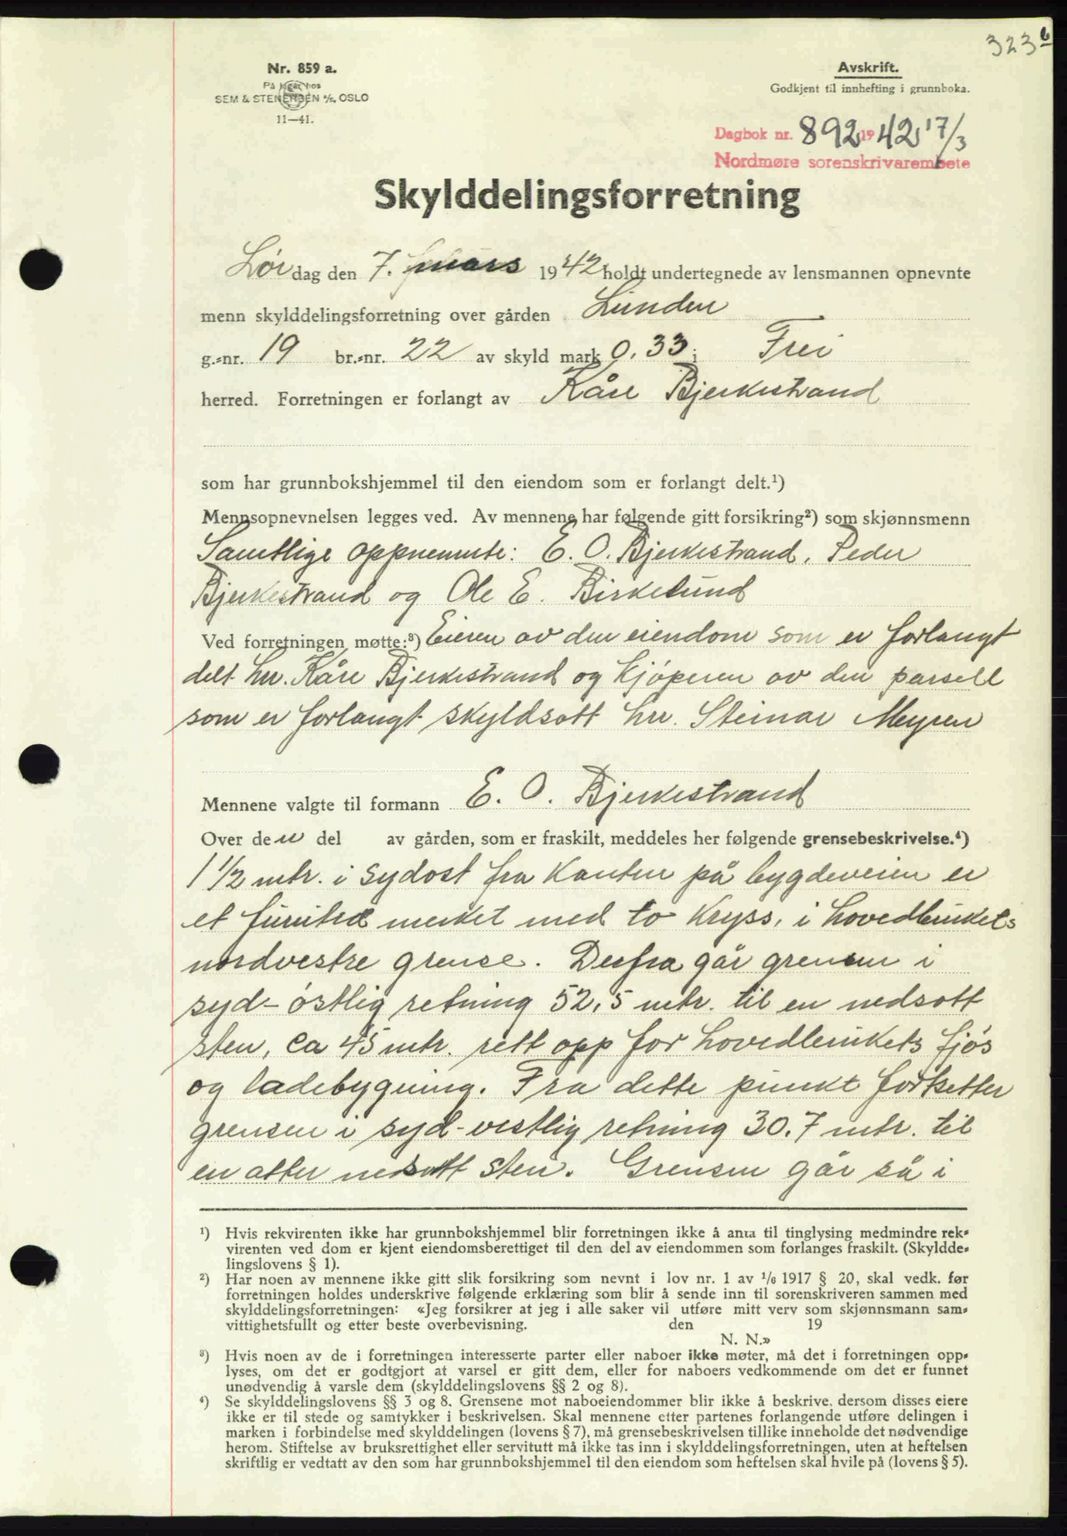 323 b
Nr. 859 a.
På lager hos
SEM & STENERSEN A/S, OSLO
11—41.
Avskrift.
Godkjent til innhefting i grunnboka.
Dagbok nr. 892 1942 17/3
Nordmøre sorenskrivarembete
Skylddelingsforretning
Lør dag den 7. mars 1942 holdt undertegnede av lensmannen opnevnte
menn skylddelingsforretning over gården Lunden
g.-nr. 19 br.-nr. 22 av skyld mark 0.33 i Frei
herred. Forretningen er forlangt av Kåre Bjerkestrand
som har grunnbokshjemmel til den eiendom som er forlangt delt.¹)
Mennsopnevnelsen legges ved. Av mennene har følgende gitt forsikring²) som skjønnsmenn
Samtlige oppnevnte: E. O. Bjerkestrand, Peder
Bjerkestrand og Ole E. Birkelund
Ved forretningen møtte:³) Eieren av den eiendom som er forlangt
delt hr. Kåre Bjerkestrand og kjøperen av den parsell
som er forlangt skyldsatt hr. Steinar Myren
Mennene valgte til formann E. O. Bjerkestrand
Over den del av gården, som er fraskilt, meddeles her følgende grensebeskrivelse.⁴)
1 1/2 mtr. i sydost fra kanten på bygdeveien er
et furutre merket med to kryss, i hovedbrukets
nordvestre grense. Derfra går grensen i
syd-östlig retning 52,5 mtr. til en nedsatt
sten, ca 45 mtr. rett opp for hovedbrukets fjös
og ladebygning. Fra dette punkt fortsetter
grensen i syd-vestlig retning 30.7 mtr. til
en atter nedsatt sten. Grensen går så i
¹) Hvis rekvirenten ikke har grunnbokshjemmel blir forretningen ikke å anta til tinglysing medmindre rek-
virenten ved dom er kjent eiendomsberettiget til den del av eiendommen som forlanges fraskilt. (Skyldde-
lingslovens § 1).
²) Har noen av mennene ikke gitt slik forsikring som nevnt i lov nr. 1 av 1/6 1917 § 20, skal vedk. før
forretningen holdes underskrive følgende erklæring som blir å sende inn til sorenskriveren sammen med
skylddelingsforretningen: «Jeg forsikrer at jeg i alle saker vil utføre mitt verv som skjønnsmann sam-
vittighetsfullt og etter beste overbevisning. den 19
N. N.»
³) Hvis noen av de i forretningen interesserte parter eller naboer ikke møter, må det i forretningen opp-
lyses, om det er godtgjort at varsel er gitt dem, eller for naboers vedkommende om det er funnet
unødvendig å varsle dem (skylddelingslovens §§ 2 og 8).
⁴) Se skylddelingslovens §§ 3 og 8. Grensene mot naboeiendommer blir ikke å beskrive, dersom disses eiere
ikke er til stede og samtykker i beskrivelsen. Skal mennene etter partenes forlangende utføre delingen i
marken i forbindelse med skylddelingen (lovens § 7), må grensebeskrivelsen tillike inneholde det nødvendige
herom. Stiftelse av bruksrettighet eller servitutt må ikke tas inn i skylddelingsforretningen, uten at heftelsen
skriftlig er vedtatt av den som har grunnbokshjemmel til den eiendom som heftelsen skal hvile på (lovens § 5).